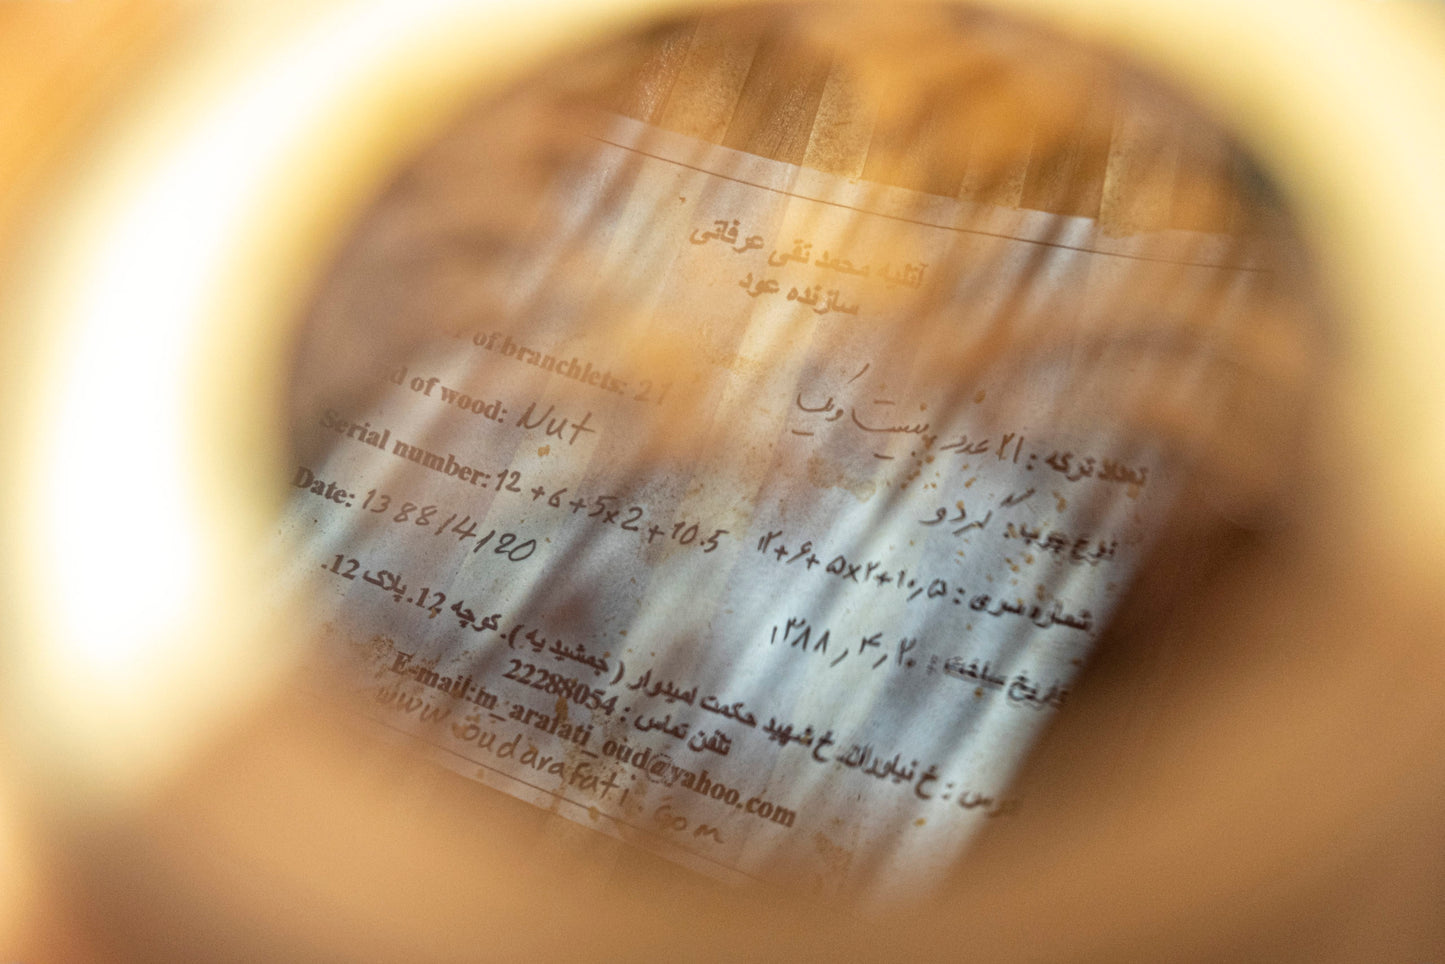 آتلیه محمد تقی عرفاتی
سازنده عود
of branchlets: 21
تعداد ترکه : ۲۱ عدد بیست و یک
of wood: Nut
نوع چوب : گردو
Serial number: 12+6+5x2+10.5
شماره سری : ۱۲+۶+۵x۲+۱۰٫۵
Date: 1388/4/20
تاریخ ساخت : ۱۳۸۸٫۴٫۲۰
خ نیاوران. خ شهید حکمت امیدوار ( جمشیدیه ). کوچه 12. پلاک 12.
تلفن تماس : 22288054
E-mail:m_arafati_oud@yahoo.com
www.oudarafati.com